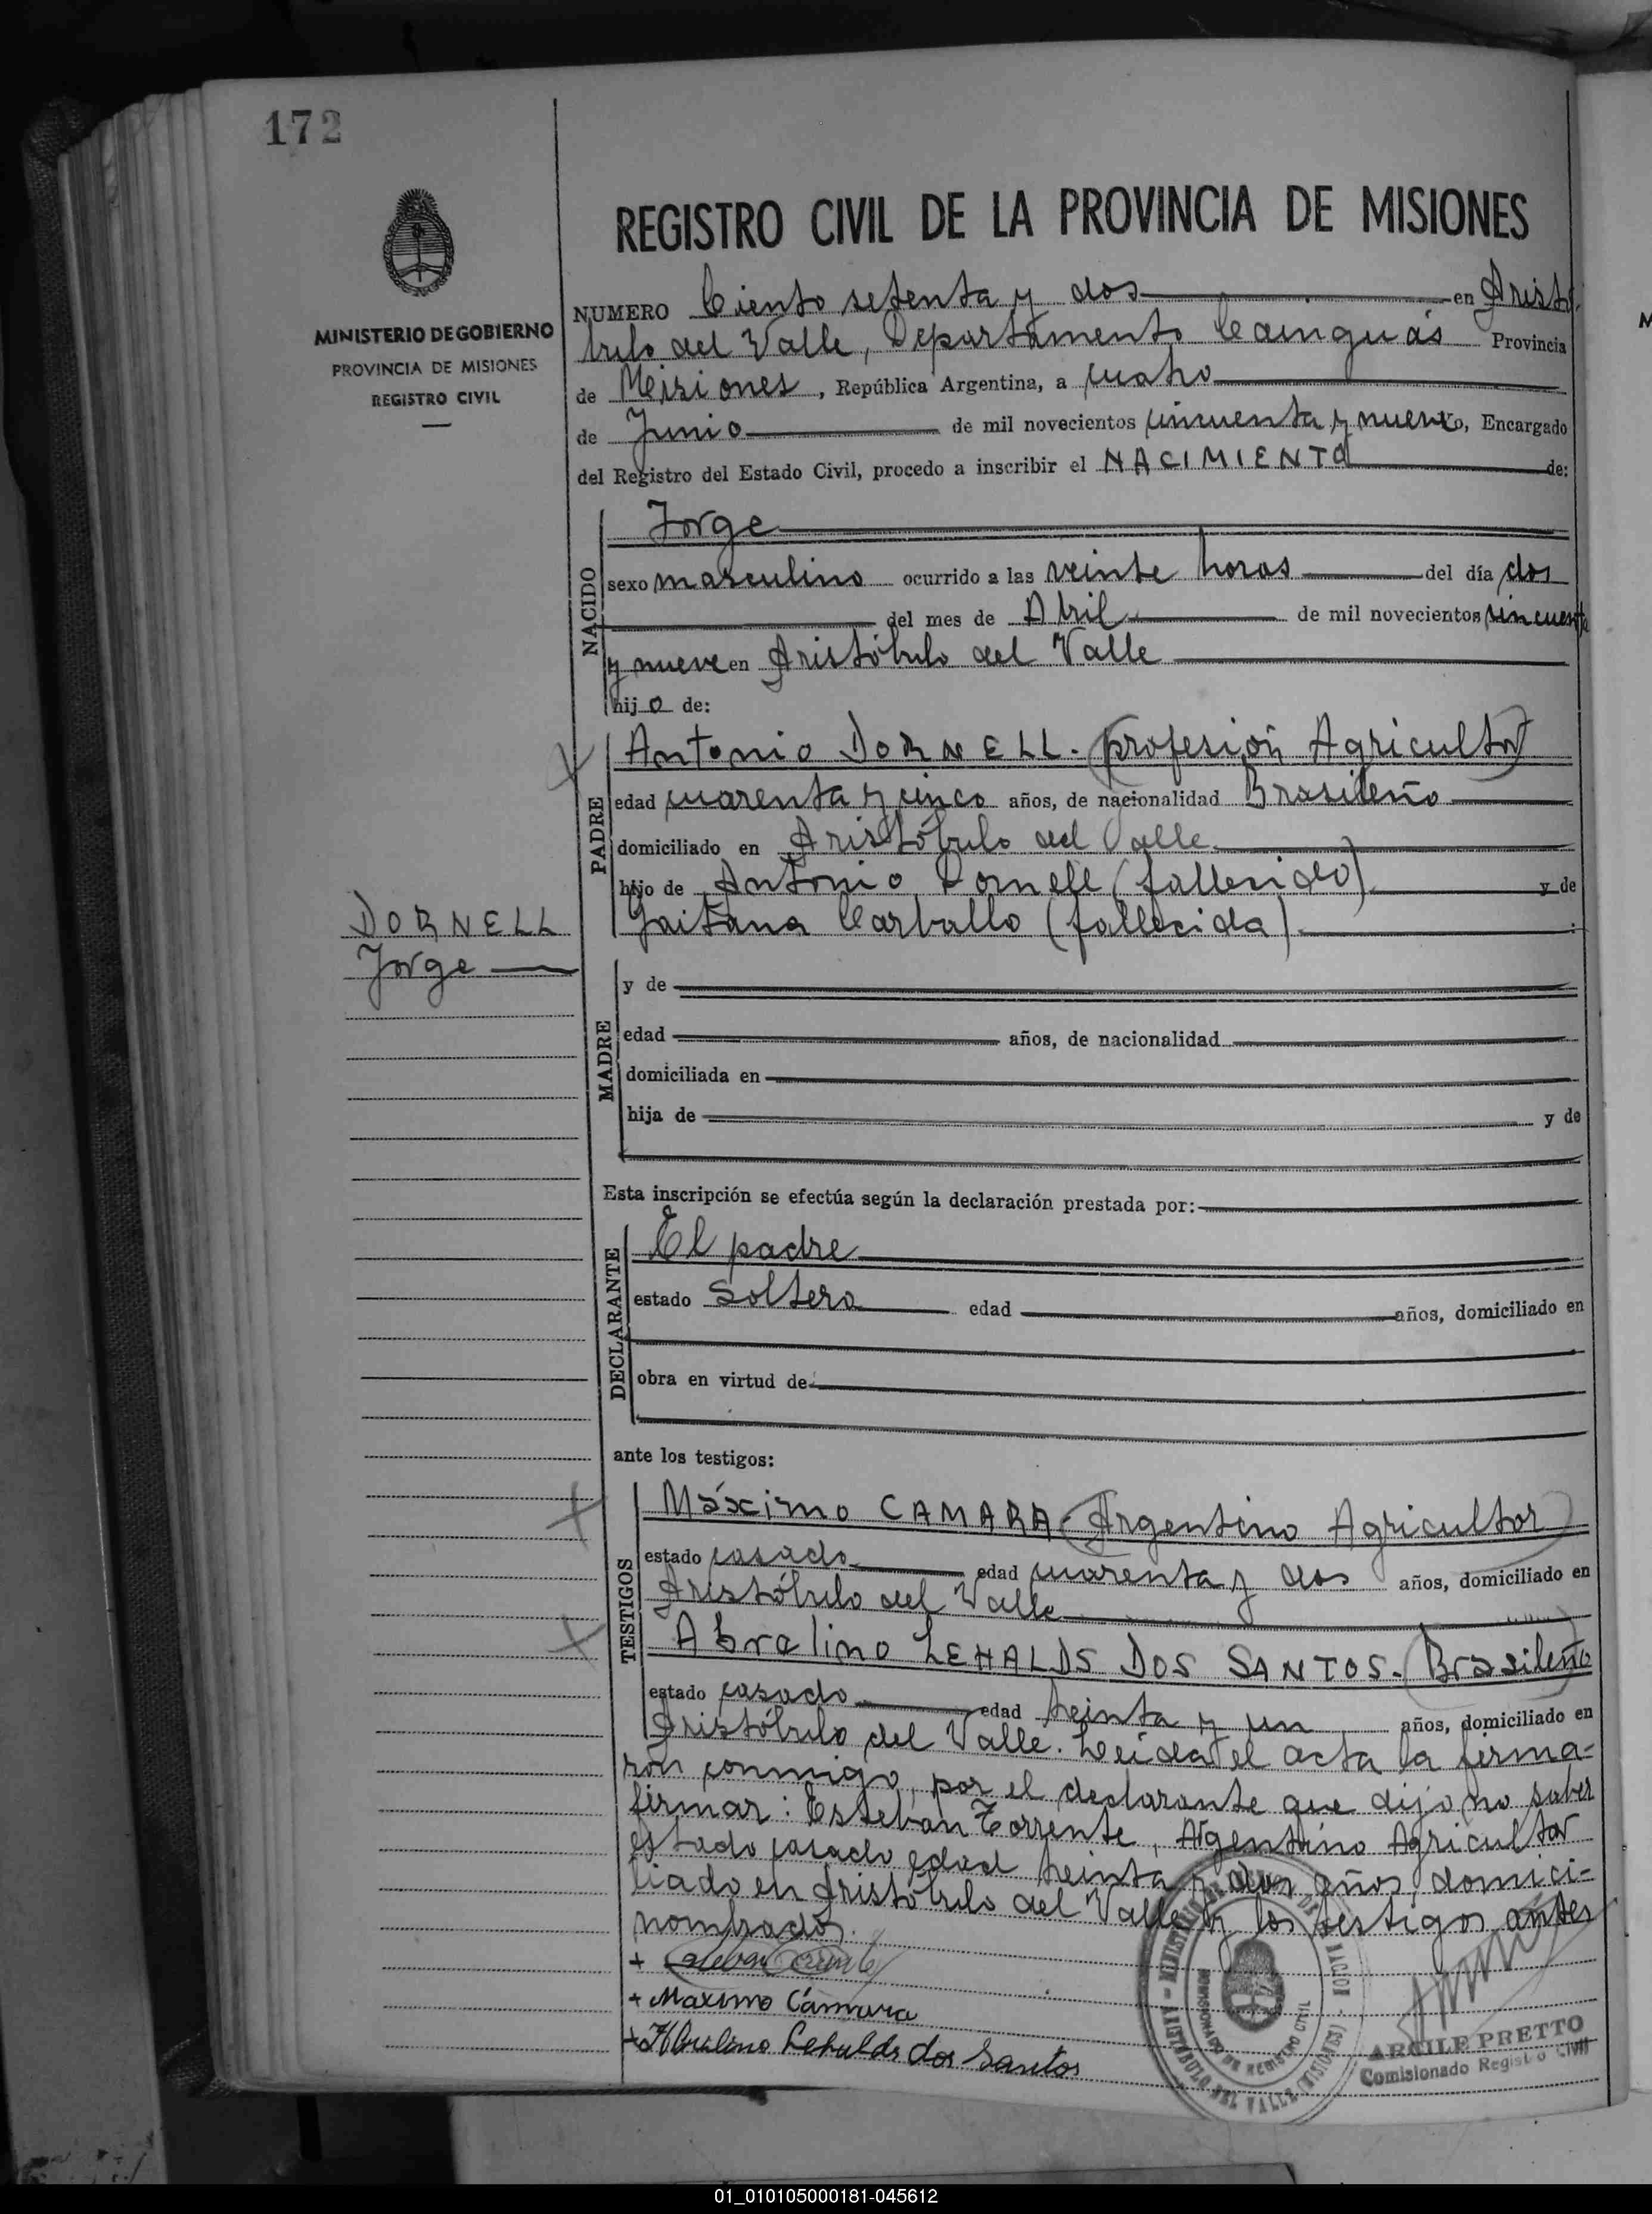 172
MINISTERIO DE GOBIERNO
PROVINCIA DE MISIONES
REGISTRO CIVIL
REGISTRO CIVIL DE LA PROVINCIA DE MISIONES
NUMERO Ciento setenta y dos en Aristó
bulo del Valle, Departamento Cainguás Provincia
de Misiones, República Argentina, a cuatro
de Junio de mil novecientos cincuenta y nueve, Encargado
del Registro del Estado Civil, procedo a inscribir el NACIMIENTO de:
NACIDO
Jorge
sexo masculino ocurrido a las veinte horas del día dos
del mes de Abril de mil novecientos cincuenta
y nueve en Aristóbulo del Valle
hijo de:
PADRE
Antonio DORNELL. (profesión Agricultor)
edad cuarenta y cinco años, de nacionalidad Brasileño
domiciliado en Aristóbulo del Valle.
hijo de Antonio Dornell (fallecido) y de
Gaitana Carballo (fallecida).
DORNELL
Jorge
MADRE
y de
edad años, de nacionalidad
domiciliada en
hija de y de
Esta inscripción se efectúa según la declaración prestada por:
DECLARANTE
El padre
estado soltero edad años, domiciliado en
obra en virtud de
ante los testigos:
TESTIGOS
Máximo CAMARA (Argentino Agricultor)
estado casado edad cuarenta y dos años, domiciliado en
Aristóbulo del Valle
Abralino LEHALDS DOS SANTOS. (Brasileño
estado casado edad treinta y un años, domiciliado en
Aristóbulo del Valle. Leida el acta la firma-
rón conmigo, por el declarante que dijo no saber
firmar: Esteban Torrente, Argentino Agricultor
estado casado edad treinta y dos años, domici-
liado en Aristóbulo del Valle y los testigos antes
nombrados.
+ Esteban Torrente
+ Maximo Cámara
+ Abralino Lehalds dos Santos
ARCILE PRETTO
Comisionado Registro Civil
01_010105000181-045612